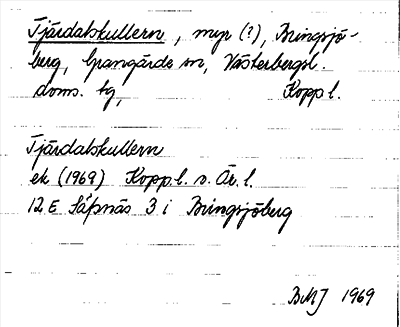 Tjärdalskullern, myr (?), Bringsjö-
berg, Grangärde sn, Västerbergsl.
doms. tg, Kopp l.
Tjärdalskullern
ek (1969) Kopp. l. s. Är. l.
12 E Säfsnäs 3 i Bringsjöberg
BMJ 1969